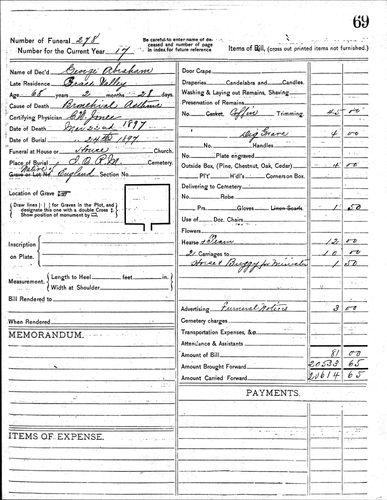 69
Number of Funeral 278
Number for the Current Year 17
Be careful to enter name of deceased and number of page in index for future reference
Items of Bill, (cross out printed items not furnished.)
Name of Dec'd George Abraham
Late Residence Grass Valley
Age 68 years 2 months 28 days
Cause of Death Bronchial Asthma
Certifying Physician C.W. Jones
Date of Death Mar 22nd 1897
Date of Burial " 24th 1897
Funeral at House or House Church.
Place of Burial I.O.R.M. Cemetery.
Native of England
Grave or Lot No. Section No.
Location of Grave
Draw lines for Graves in the Plot, and designate this one with a double Cross
Show position of monument by
Inscription
on Plate.
Measurement. Length to Heel feet in.
Width at Shoulder
Bill Rendered to
When Rendered
MEMORANDUM.
ITEMS OF EXPENSE.
Door Crape
Draperies Candelabra and Candles.
Washing & Laying out Remains, Shaving
Preservation of Remains
No Casket, Coffin Trimming. 45 00
Dig Grave 4 00
No. Handles
Plate engraved
Outside Box, (Pine, Chestnut, Oak, Cedar) 4 00
P'l'y H'd'l's Corners on Box.
Delivering to Cemetery
No. Robe
Prs. Gloves Linen Scarfs 1 50
Use of Doz. Chairs
Flowers
Hearse & Team 12 00
2 Carriages to 10 00
Horse & Buggy for Minister 1 50
Advertising Funeral Notice 3 00
Cemetery charges
Transportation Expenses, &c
Attendance & Assistants
Amount of Bill 81 00
Amount Brought Forward 20533 65
Amount Carried Forward 20614 65
PAYMENTS.